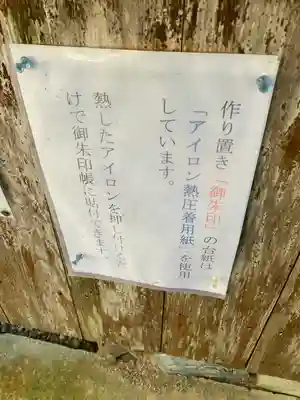 作り置き「御朱印」の台紙は
「アイロン熱圧着用紙」を使用
しています。
熱したアイロンを押し付けるだ
けで御朱印帳に貼付できます。